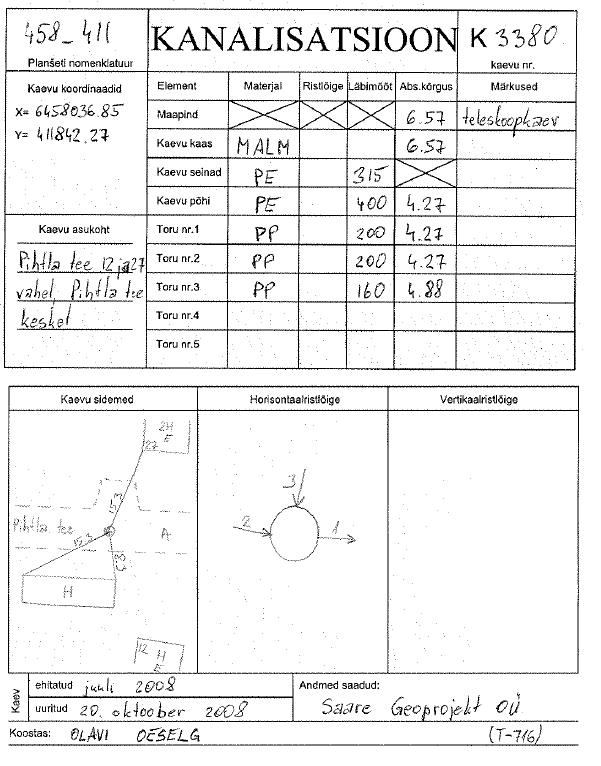 458_411
Planšeti nomenklatuur
KANALISATSIOON
K 3380
kaevu nr.
Kaevu koordinaadid
X= 6458036.85
Y= 411842.27
Element Materjal Ristlõige Läbimõõt Abs.kõrgus Märkused
Maapind 6.57 teleskoopkaev
Kaevu kaas MALM 6.57
Kaevu seinad PE 315
Kaevu põhi PE 400 4.27
Kaevu asukoht
Pihtla tee 12 ja 27
vahel, Pihtla tee
keskel
Toru nr.1 PP 200 4.27
Toru nr.2 PP 200 4.27
Toru nr.3 PP 160 4.88
Toru nr.4
Toru nr.5
Kaevu sidemed Horisontaalristlõige Vertikaalristlõige
2H
E
27
15.3
Pihtla tee
15.3
A
H
12 H
E
3
2
1
Kaev
ehitatud juuli 2008
uuritud 20. oktoober 2008
Andmed saadud:
Saare Geoprojekt OÜ
Koostas: OLAVI OESELG
(T-716)